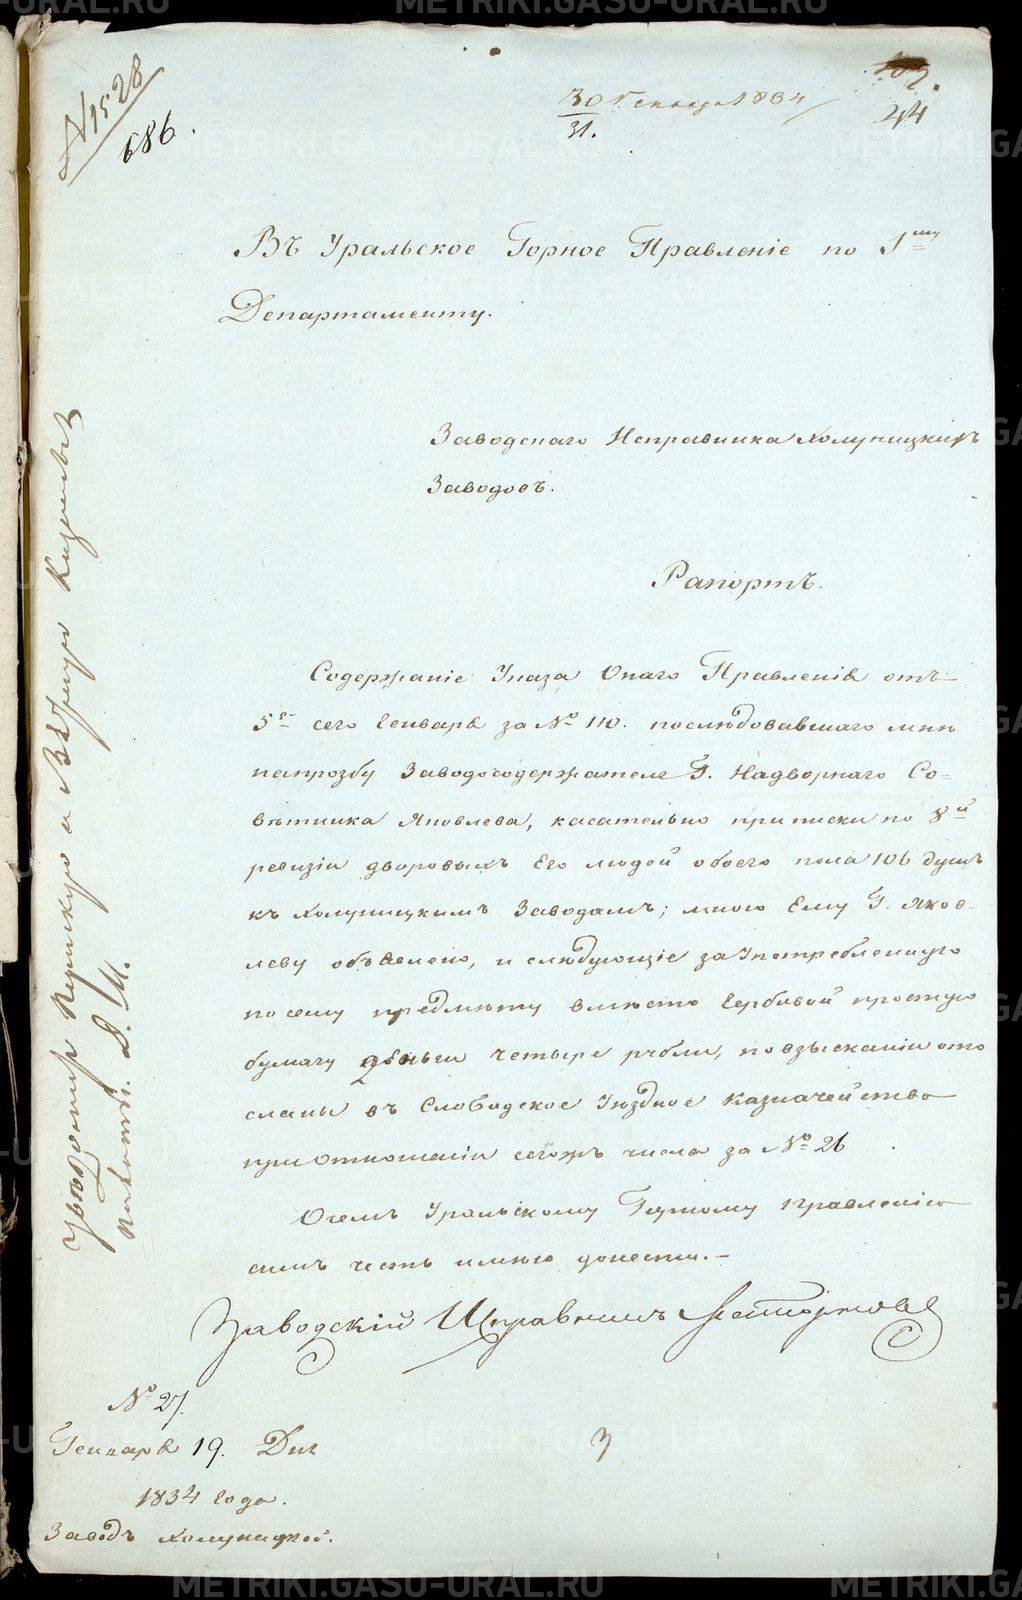 № 1528
686.
30 Генваря 1834
31.
102.
44
Въ Уральское Горное Правленіе по 1му
Департаменту.
Заводскаго Исправника Холуницкихъ
Заводовъ.
Рапортъ.
Содержаніе Указа Онаго Правленія отъ
5го сего Генваря за № 110. послѣдовавшаго мнѣ
напрозбу Заводосодержателя Г. Надворнаго Со-
вѣтника Яковлева, касательно приписки по 8й
ревизіи дворовыхъ Его людей обоего пола 106 душъ
къ Холуницкимъ Заводамъ; мною Ему Г. Яков-
леву объявлено, и слѣдующіе за Употребленную
по сему предмѣту вмѣсто Гербовой простую
бумагу деньги четыре рубли, по взысканіи ото
сланы въ Слободское Уѣздное Казначейство
при Отношеніи сегожъ числа за № 26
О чемъ Уральскому Горному Правленію
симъ честь имѣю донести.-
Заводскій Исправникъ
№ 27.
Генваря 19. Дня
1834 Года.
Заводъ Холуницкой.
3